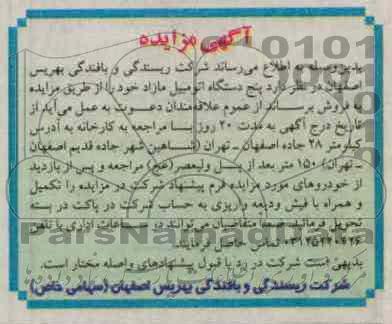 آگهی مزایده
بدین وسیله به اطلاع می‌رساند شرکت ریسندگی و بافندگی بهریس
اصفهان در نظر دارد پنج دستگاه اتومبیل مازاد خود را از طریق مزایده
به فروش برساند از عموم علاقه‌مندان دعوت به عمل می‌آید از
تاریخ درج آگهی به مدت ۲۰ روز با مراجعه به کارخانه به آدرس
کیلومتر ۲۸ جاده اصفهان ـ تهران (شاهین شهر جاده قدیم اصفهان
ـ تهران) ۱۵۰ متر بعد از پل ولیعصر (عج) مراجعه و پس از بازدید
از خودروهای مورد مزایده فرم پیشنهاد شرکت در مزایده را تکمیل
و همراه با فیش ودیعه واریزی به حساب شرکت در پاکت در بسته
تحویل فرمائید. ضمنا متقاضیان می‌توانند در ساعات اداری با تلفن
تماس حاصل فرمایند.
بدیهی است شرکت در رد یا قبول پیشنهادهای واصله مختار است.
شرکت ریسندگی و بافندگی بهریس اصفهان (سهامی خاص)
ParsNamadData